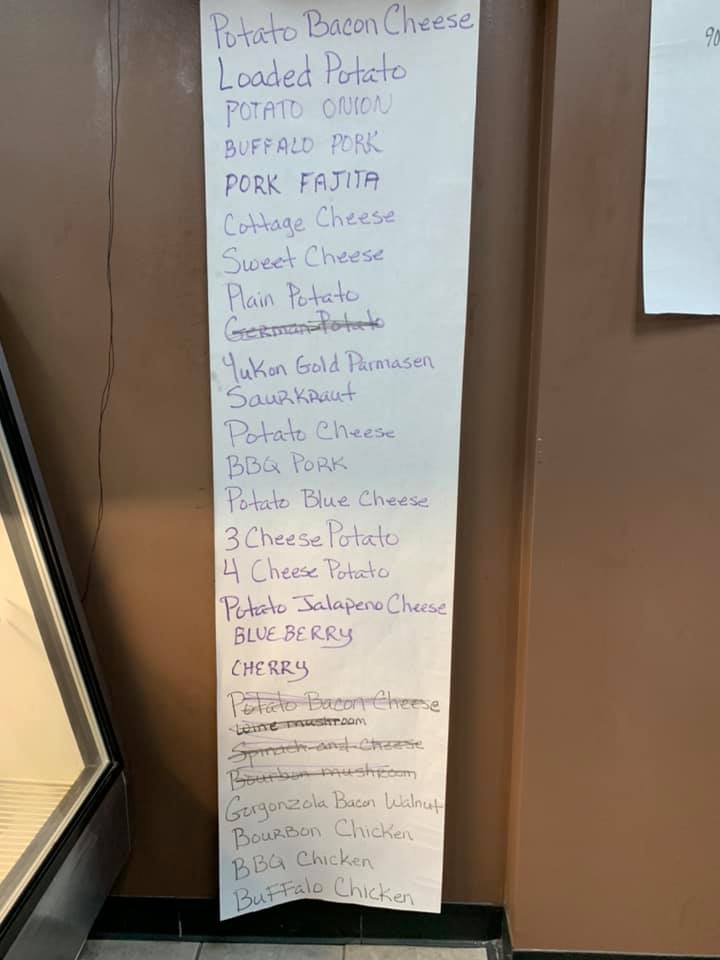 Potato Bacon Cheese
Loaded Potato
POTATO ONION
BUFFALO PORK
PORK FAJITA
Cottage Cheese
Sweet Cheese
Plain Potato
German Potato
Yukon Gold Parmasen
SauRKRaut
Potato Cheese
BBQ PORK
Potato Blue Cheese
3 Cheese Potato
4 Cheese Potato
Potato Jalapeno Cheese
BLUEBERRY
CHERRY
Potato Bacon Cheese
Wine mushroom
Spinach and Cheese
Bourbon mushroom
Gorgonzola Bacon Walnut
BouRBon Chicken
BBQ Chicken
BuFFalo Chicken
90